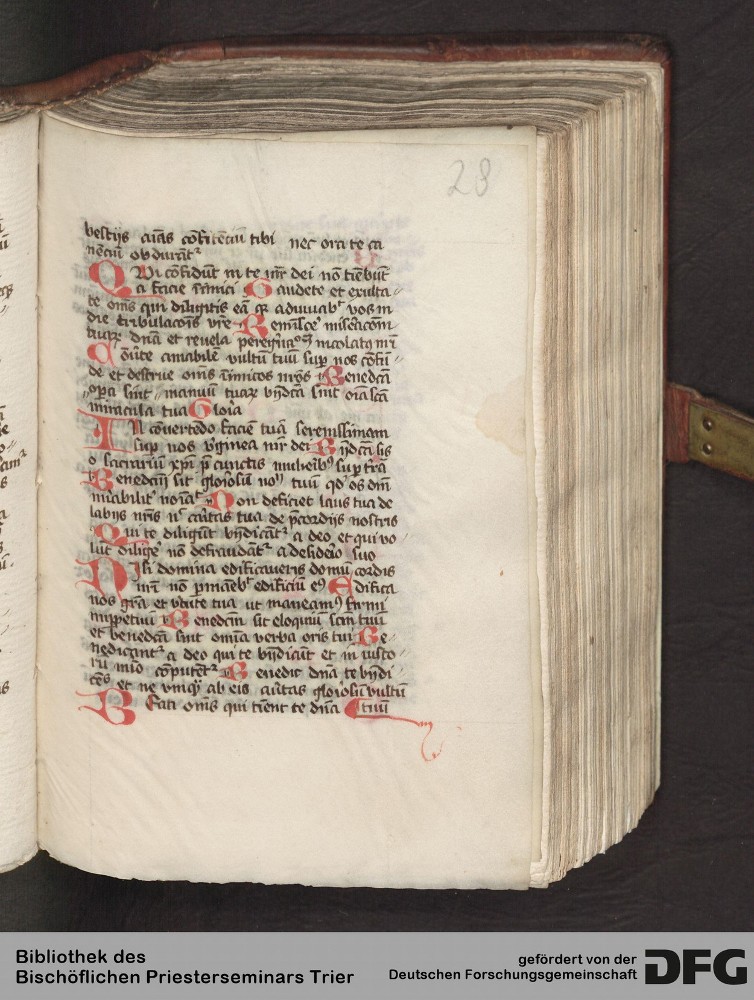 28
bestijs aı̄as cōfitēciū tibi nec ora te ca
nēciū obdurāt
Qui cōfidūt in te mr̄ dei nō tiēbūt
a facie inimici Gaudete et exulta-
te om̄s qui diligitis eā qr̄ adiuuabᵗ vos in
die tribulacōis vr̄e Reminisce misͣcōm
tuaꝝ dn̄a et releua
Cōūte amabilē vultū tuū sup nos cōfū-
de et destrue om̄s inimicos nr̄os Benedcā
opa sint manuū tuaꝝ bn̄dcā sint oīa scā
miracula tua Gloria
In cōuertēdo faciē tuā serenissimam
sup nos virginea mr̄ dei Bn̄dcā sis
o sacrariū xpi p cunctis mulieribꝰ sup trā
Benedcm̄ sit gloriosū nomē tuū qd os dnī
mirabilitʳ noīaᵗ Non deficiet laus tua de
labijs nr̄is nᶜ caritas tua de p̄cordijs nostris
Qui te diligūt bn̄dicātʳ a deo et qui vo-
lūt diligēʳ nō defraudātʳ a desiderio suo
Nisi domina edificaueris domū cordis
nr̄i nō pmanebᵗ edificiū eiꝰ Edifica
nos grā et vtute tua ut maneamꝰ firmi
inppetuū Benedcm̄ sit eloquiū tuū
et benedcā sint omīa verba oris tui Be-
nedicantʳ a deo qui te bn̄dicūt et in iusto-
rū nūo cōputētʳ Benedic dn̄a te bn̄di-
cētes et ne vnq̄ ab eis auertas gloriosū vultū
Beati om̄s qui timēt te dn̄a tuū
Bibliothek des
Bischöflichen Priesterseminars Trier
gefördert von der
Deutschen Forschungsgemeinschaft
DFG